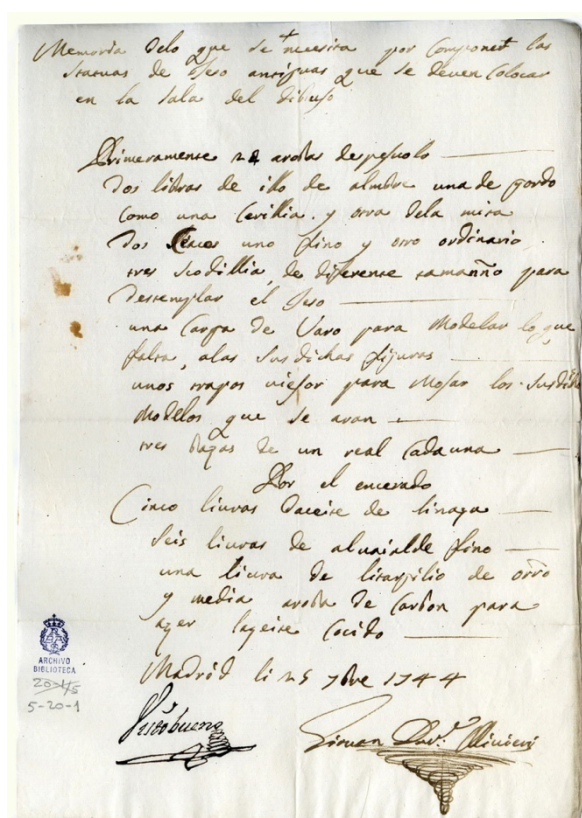 Memoria delo que se necesita por Componer las
statuas de Jeso antiguas que se deven Colocar
en la sala del dibuso
Primeramente 24 arobas despesuolo
dos libras de illo de almbre una de gordo
Como una Cevillia y otra dela mita
dos uno fino y otro ordinario
tres scodillia de diferense tamañño para
destemplar el Jeso
una Carga de Varo para Modelar lo que
falta, alas Sus dichas figuras
unos trapos viejos para Mojar los Susdich
Modelos que se aran
tres de un real Cadauna
Por el encerado
Cinco livras daceite de linaza
Seis livras de alvaialde fino
una livra de litarjilio de orro
y media aroba de Carbon para
azer lazeite Cocido
Madrid li 25 7bre 1744
Vistobueno
Giovan
ARCHIVO
BIBLIOTECA
5-20-1